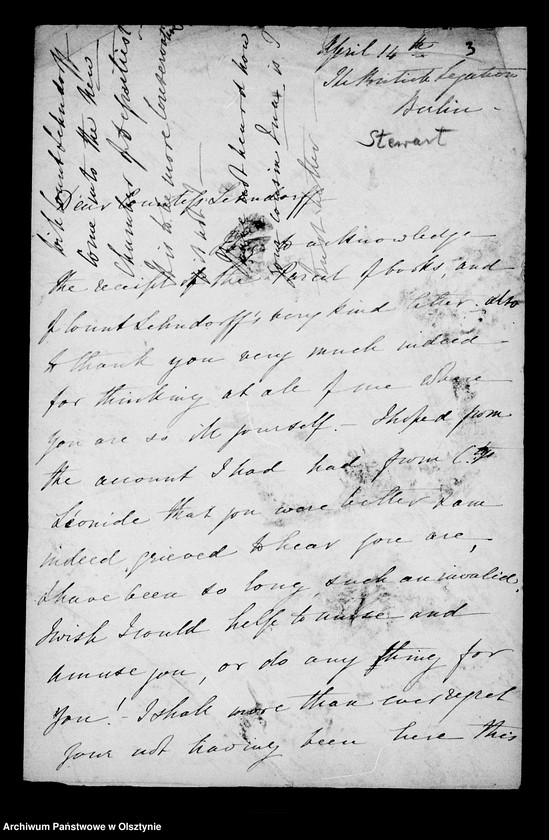 April 14th 3
The British Legation
Berlin -
Stewart
Dear Countess Lehndorff
to acknowledge
the receipt of the Parcel of books, and
of Count Lehndorff's very kind letter - also
to thank you very much indeed -
for thinking at all of me when
you are so ill yourself. - I hoped from
the account I had had from Ctss
Léonide that you were better & am
indeed grieved to hear you are,
& have been so long, such an invalid.
I wish I could help to nurse and
amuse you, or do any thing for
you! - I shall more than ever regret
your not having been here this
Will Count Lehndorff
come into the New
Chamber of Deputies?
It is to be a more Conservative
is it not? -
have not heard how
your cousin is ?
Archiwum Państwowe w Olsztynie